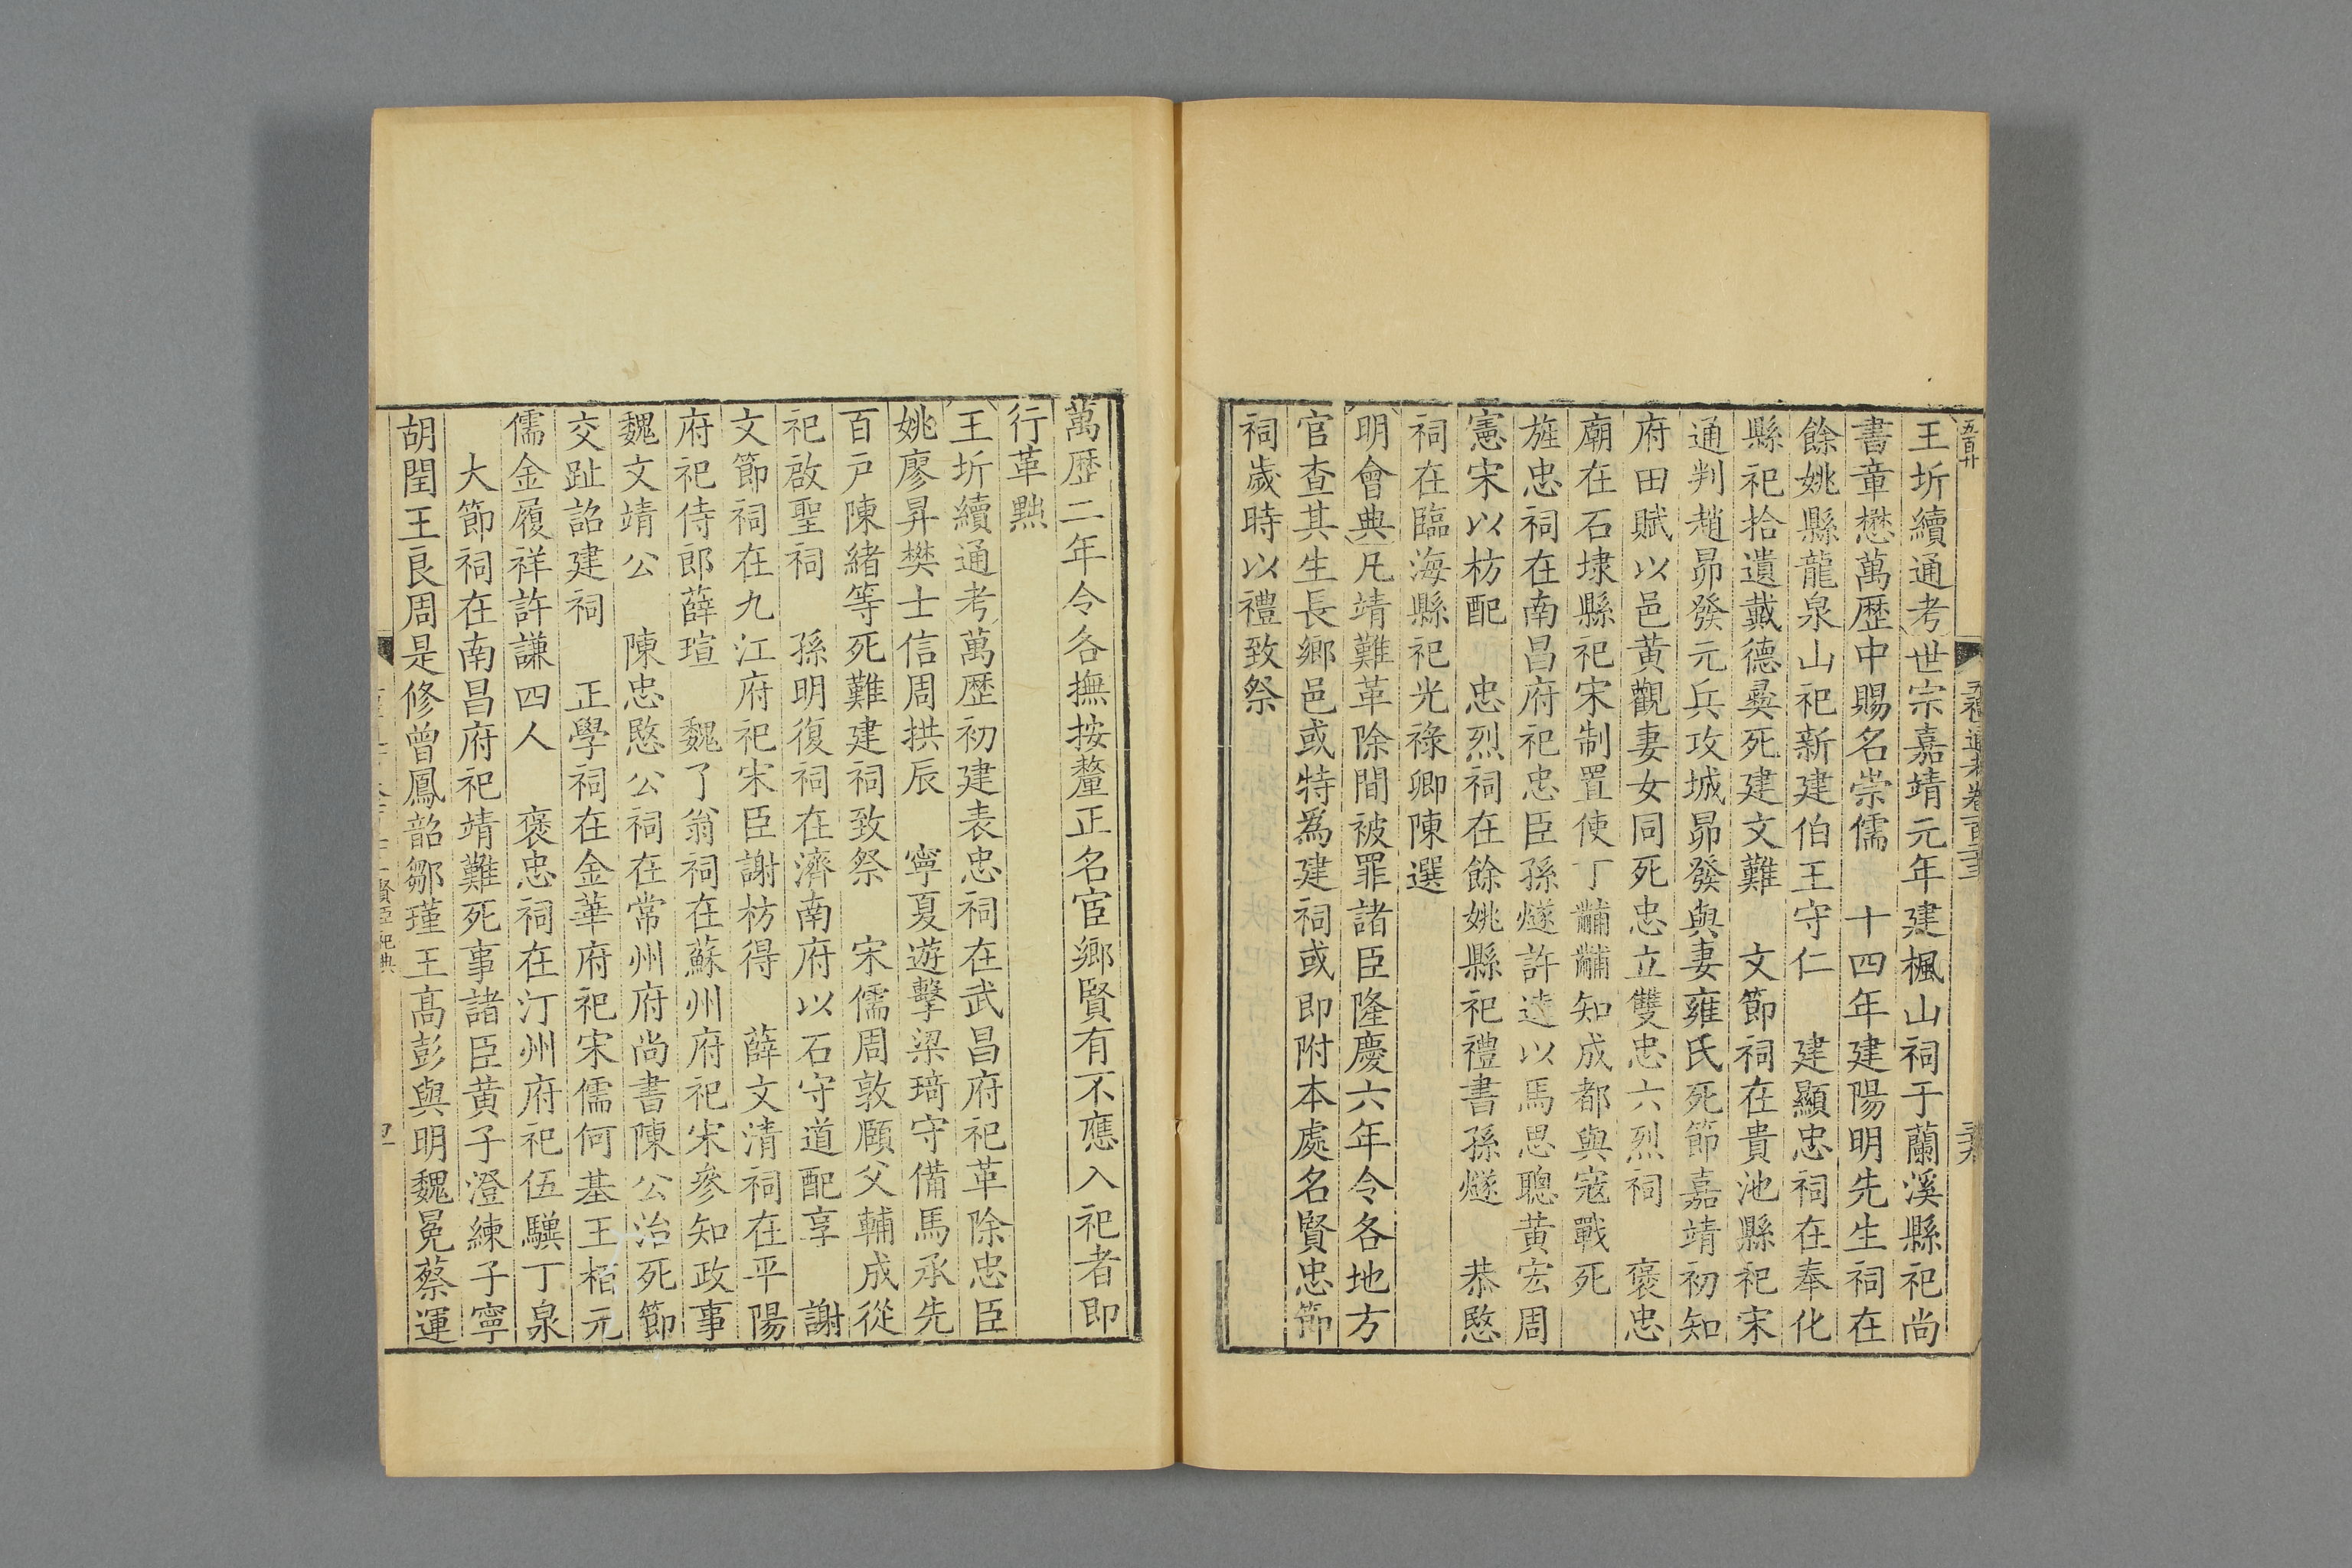 王圻續通考世宗嘉靖元年建楓山祠于蘭溪縣祀尚
書章懋萬歴中賜名崇儒　十四年建陽明先生祠在
餘姚縣龍泉山祀新建伯王守仁　建顯忠祠在奉化
縣祀拾遺戴德彝死建文難　文節祠在貴池縣祀宋
通判趙昴發元兵攻城昴發與妻雍氏死節嘉靖初知
府田賦以邑黄觀妻女同死忠立雙忠六烈祠　褒忠
廟在石埭縣祀宋制置使丁黼黼知成都與寇戰死
旌忠祠在南昌府祀忠臣孫燧許逵以馬思聰黄宏周
憲宋以枋配　忠烈祠在餘姚縣祀禮書孫燧　恭愍
祠在臨海縣祀光祿卿陳選
明會典凡靖難革除間被罪諸臣隆慶六年令各地方
官查其生長鄉邑或特為建祠或即附本處名賢忠節
祠歲時以禮致祭
萬歴二年令各撫按釐正名宦鄉賢有不應入祀者即
行革黜
王圻續通考萬歴初建表忠祠在武昌府祀革除忠臣
姚廖昇樊士信周拱辰　寧夏遊擊梁琦守備馬承先
百戸陳緒等死難建祠致祭　宋儒周敦頥父輔成從
祀啟聖祠　孫明復祠在濟南府以石守道配享　謝
文節祠在九江府祀宋臣謝枋得　薛文清祠在平陽
府祀侍郎薛瑄　魏了翁祠在蘇州府祀宋參知政事
魏文靖公　陳忠愍公祠在常州府尚書陳公洽死節
交趾詔建祠　正學祠在金華府祀宋儒何基王栢元
儒金履祥許謙四人　褒忠祠在汀州府祀伍驥丁泉
大節祠在南昌府祀靖難死事諸臣黄子澄練子寧
胡閏王良周是修曾鳳韶鄒瑾王高彭與明魏冕蔡運
賢臣祀典